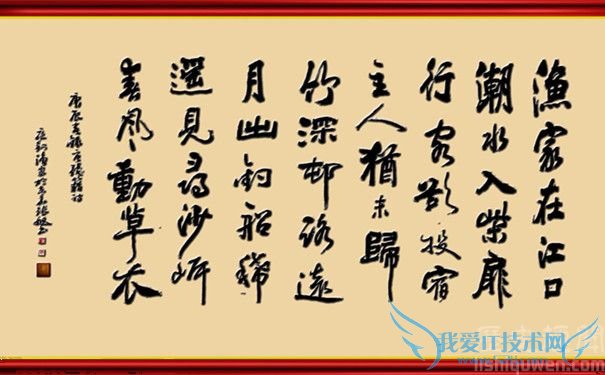 漁家在江口
潮水入柴扉
行客欲投宿
主人猶未歸
竹深邨路遠
月出釣船稀
遥見尋沙岸
春風動草衣
庚辰 張籍詩
我爱IT技术网
lishiquwen.com